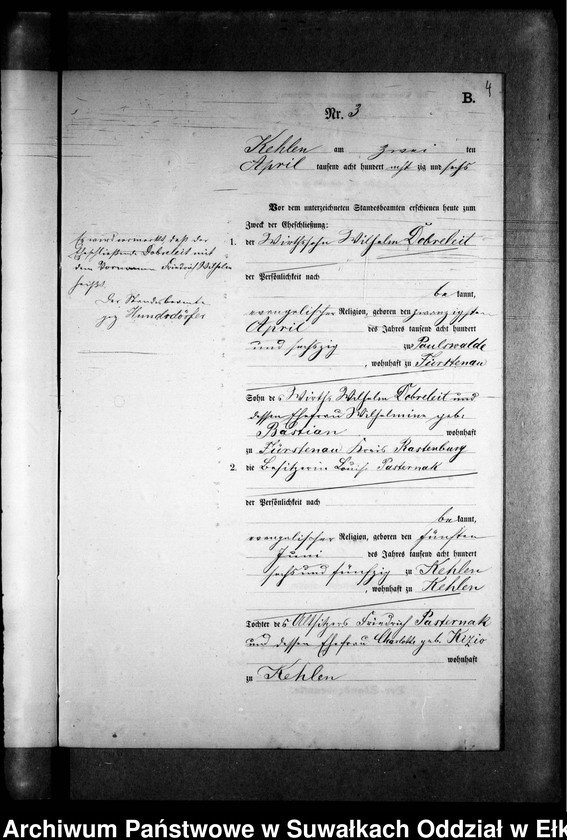 4
B.
Nr. 3
Kehlen am zwei ten
April tausend acht hundert acht zig und sechs
Vor dem unterzeichneten Standesbeamten erschienen heute zum
Zweck der Eheschließung:
1. der Wirthssohn Wilhelm Dobreleit
der Persönlichkeit nach
be kannt,
evangelischer Religion, geboren den zwanzigsten
April des Jahres tausend acht hundert
und sechszig zu Paulswalde
, wohnhaft zu Fürstenau
Sohn des Wirths Wilhelm Dobreleit und
dessen Ehefrau Wilhelmine geb.
Bastian wohnhaft
zu Fürstenau Kreis Rastenburg
2. die Besitzerin Louise Pasternak
der Persönlichkeit nach
be kannt,
evangelischer Religion, geboren den fünften
Juni des Jahres tausend acht hundert
sechs und fünfzig zu Kehlen
, wohnhaft zu Kehlen
Tochter des Altsitzers Friedrich Pasternak
und dessen Ehefrau Charlotte geb. Kizio
wohnhaft
zu Kehlen
Es wird vermerkt, daß der
Eheschließende Dobreleit mit
dem Vornamen Friedrich Wilhelm
heißt.
Der Standesbeamte
gez Hundsdörfer
Archiwum Państwowe w Suwałkach Oddział w Ełk